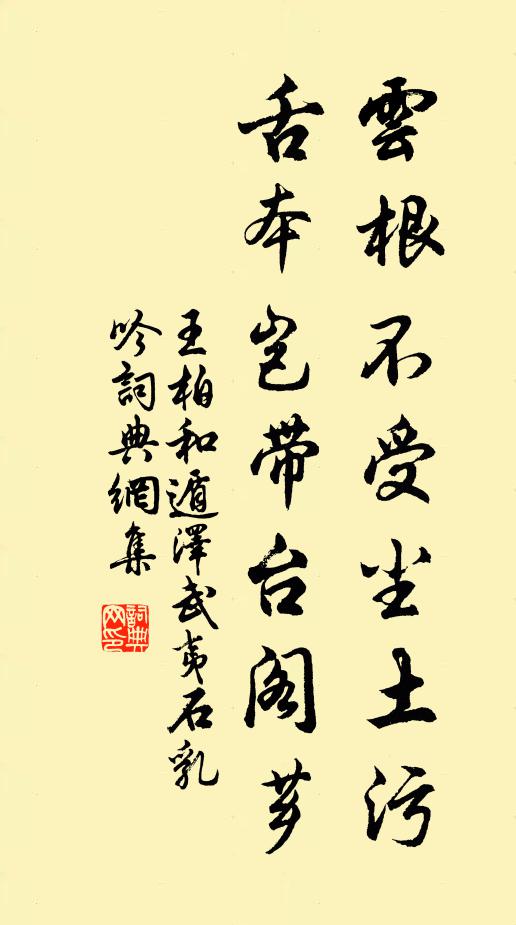 雲根不受尘土污
舌本岂带台阁芗
王柏和遁澤武夷石乳
吟詞典網集
詞典网印